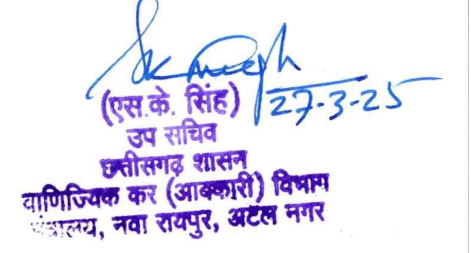 27-3-25
(एस.के. सिंह)
उप सचिव
छत्तीसगढ़ शासन
वाणिज्यिक कर (आबकारी) विभाग
नवा रायपुर, अटल नगर